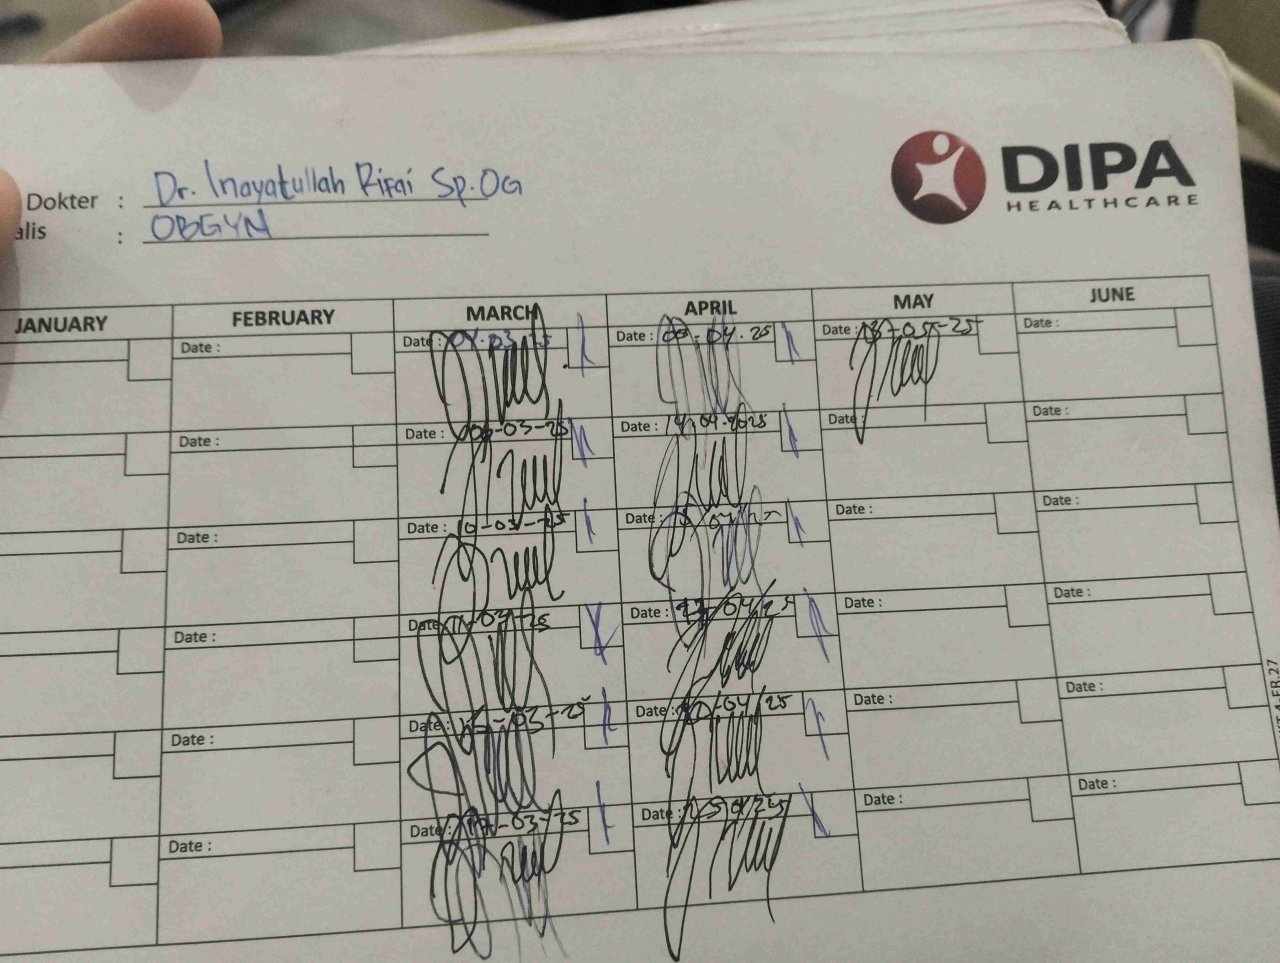 Dokter : Dr. Inayatullah Rifai Sp.OG
alis : OBGYN
DIPA
HEALTHCARE
JANUARY FEBRUARY MARCH APRIL MAY JUNE
Date : Date : 04-03-25 Date : 04.25 Date : 05-25 Date :
Date : Date : 06-03-25 Date : 14.04.2025 Date : Date :
Date : Date : 10-03-25 Date : Date : Date :
Date : Date : 11-03-25 Date : 04/25 Date : Date :
Date : Date : 03-25 Date : 04/25 Date : Date :
Date : Date : 03-25 Date : Date : Date :